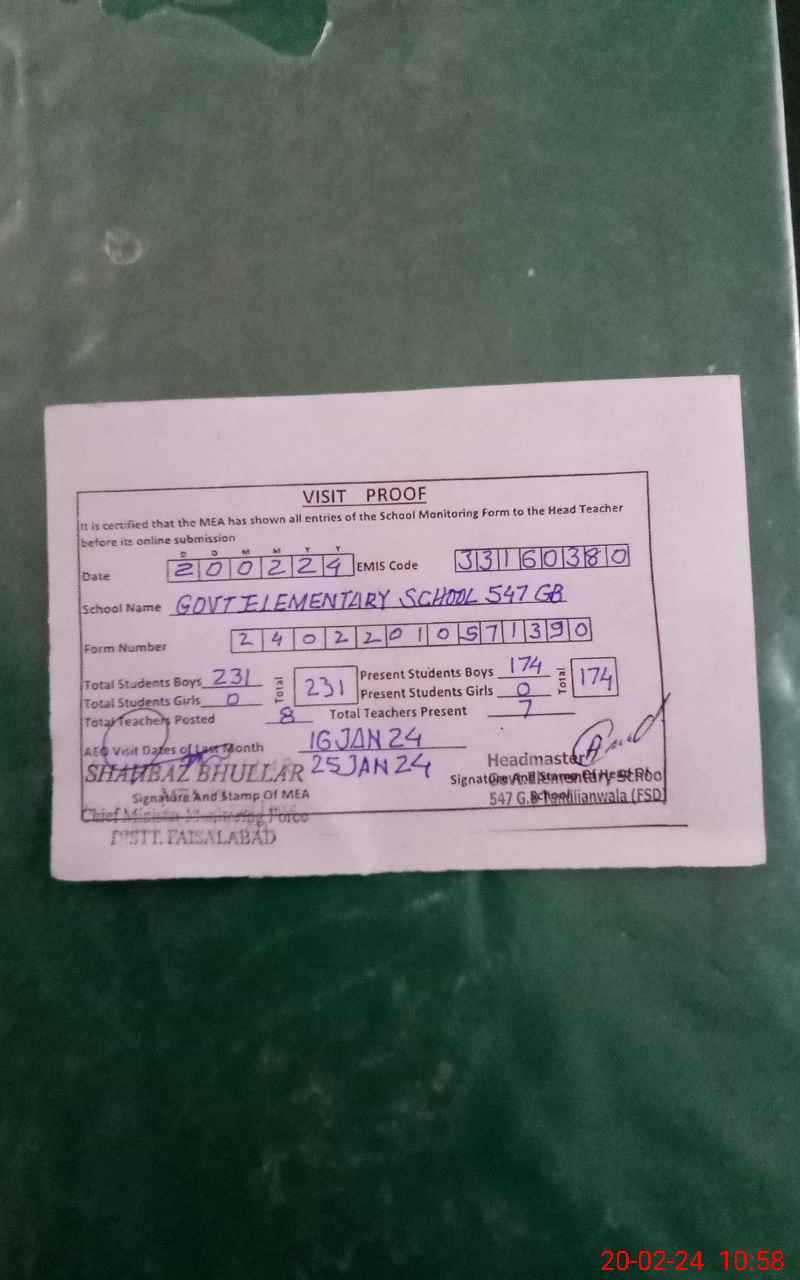 VISIT PROOF
It is certified that the MEA has shown all entries of the School Monitoring Form to the Head Teacher
before its online submission
D D M M Y Y
Date 200224 EMIS Code 33160380
School Name GOVT ELEMENTARY SCHOOL 547 GB
Form Number 24022010571390
Total Students Boys 231 Total 231 Present Students Boys 174 Total 174
Total Students Girls 0 Present Students Girls 0
Total Teachers Posted 8 Total Teachers Present 7
AEO Visit Dates of Last Month 16 JAN 24
25 JAN 24
SHAHBAZ BHULLAR
Signature And Stamp Of MEA
Chief Minister Monitoring Force
DISTT. FAISALABAD
Headmaster
Signature And Stamp Of Head Of
School
Govt. Elementary School
547 G.B Tandlianwala (FSD)
20-02-24 10:58